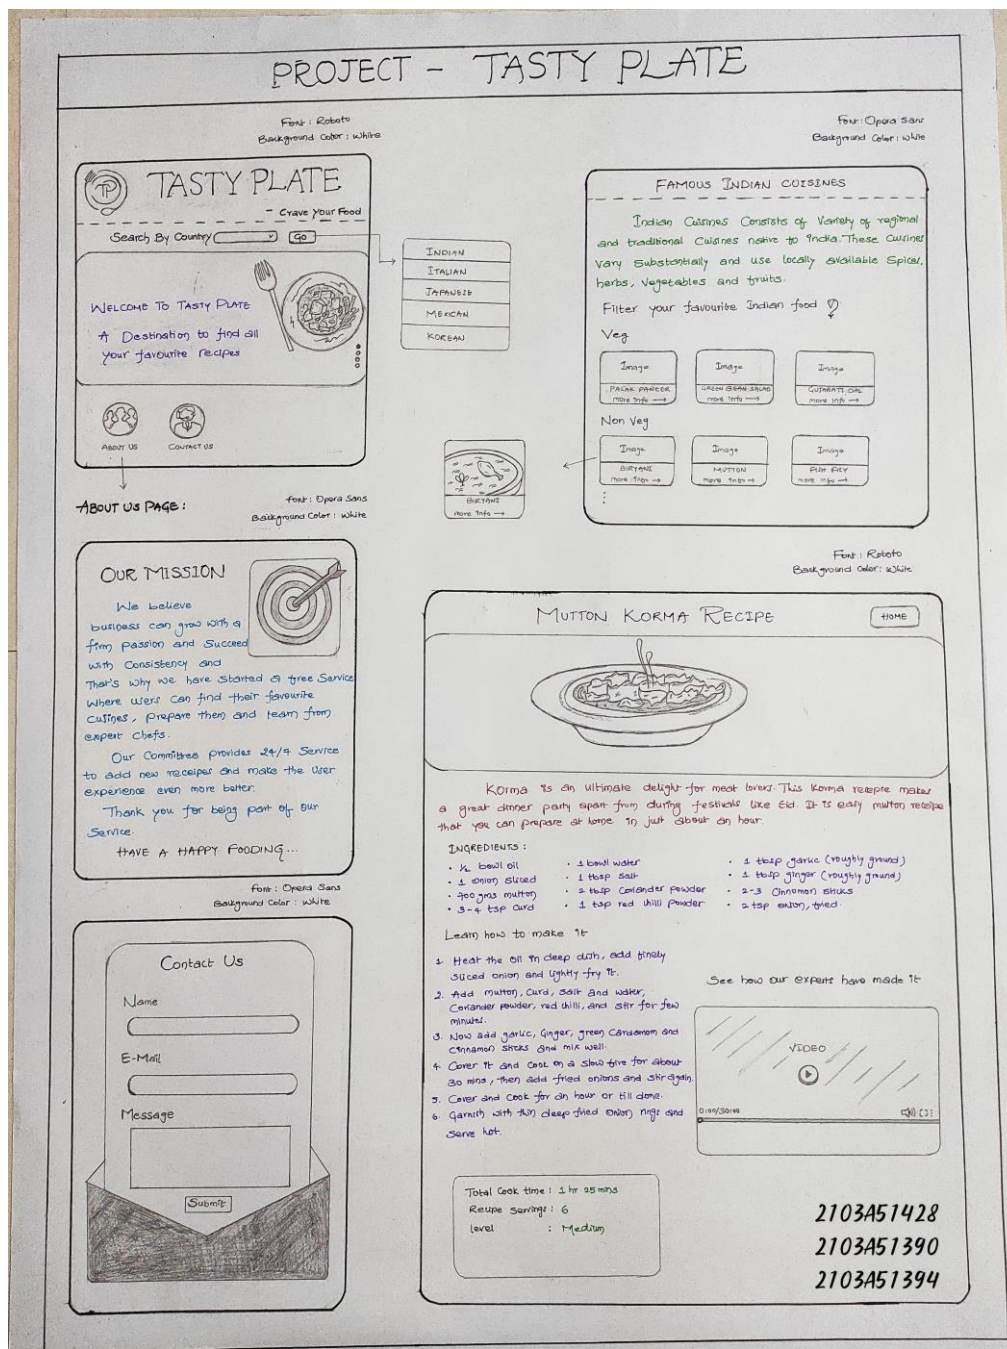 PROJECT - TASTY PLATE
Font : Roboto
Background Color : White
TP
TASTY PLATE
- Crave Your Food
Search By Country
Go
INDIAN
ITALIAN
JAPANESE
MEXICAN
KOREAN
WELCOME TO TASTY PLATE
A Destination to find all
your favourite recipes
ABOUT US
CONTACT US
Font : Opera Sans
Background Color : White
FAMOUS INDIAN CUISINES
Indian Cuisines Consists of Variety of regional
and traditional Cuisines native to India. These Cuisines
vary Substantially and use locally available Spices,
herbs, Vegetables and fruits.
Filter your favourite Indian food
Veg
Image
PALAK PANEER
more info →
Image
GREEN BEAN SALAD
more info →
Image
GUJARATI DAL
more info →
Non Veg
Image
BIRYANI
more info →
Image
MUTTON
more info →
Image
FISH FRY
more info →
BIRYANI
more info →
ABOUT US PAGE :
Font : Opera Sans
Background Color : White
OUR MISSION
We believe
business can grow with a
firm passion and Succeed
with Consistency and
That's why we have Started a free Service
where users can find their favourite
Cusines, prepare them and learn from
expert chefs.
Our Committee provides 24/7 Service
to add new receipes and make the User
experience even more better.
Thank you for being part of our
Service.
HAVE A HAPPY FOODING...
Font : Opera Sans
Background Color : White
Contact Us
Name
E-Mail
Message
Submit
Font : Roboto
Background Color : White
MUTTON KORMA RECIPE
HOME
Korma is an ultimate delight for meat lovers. This Korma recepie makes
a great dinner party apart from during festivals like Eid. It is easy mutton receipe
that you can prepare at home in just about an hour.
INGREDIENTS :
• ½ bowl oil
• 1 onion sliced
• 900 gms mutton
• 3-4 tsp curd
• 1 bowl water
• 1 tbsp salt
• 2 tbsp Coriander powder
• 1 tsp red chilli powder
• 1 tbsp garlic (roughly ground)
• 1 tbsp ginger (roughly ground)
• 2-3 Cinnamon sticks
• 2 tsp onion, fried.
Learn how to make it
1. Heat the oil in deep dish, add finely
sliced onion and lightly fry it.
2. Add mutton, Curd, salt and water,
Coriander powder, red chilli, and stir for few
minutes.
3. Now add garlic, Ginger, green Cardamom and
Cinnamon sticks and mix well.
4. Cover it and cook on a slow fire for about
30 mins, then add fried onions and stir again.
5. Cover and cook for an hour or till done.
6. Garnish with thin deep fried onion rings and
serve hot.
See how our experts have made it
VIDEO
0:00/30:00
Total Cook time : 1 hr 25 mins
Recipe Servings : 6
level : Medium
2103A51428
2103A51390
2103A51394